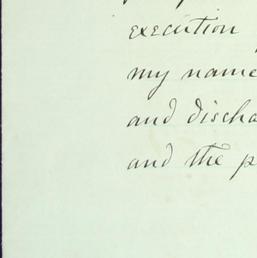 execution
my name
and discha
and the p